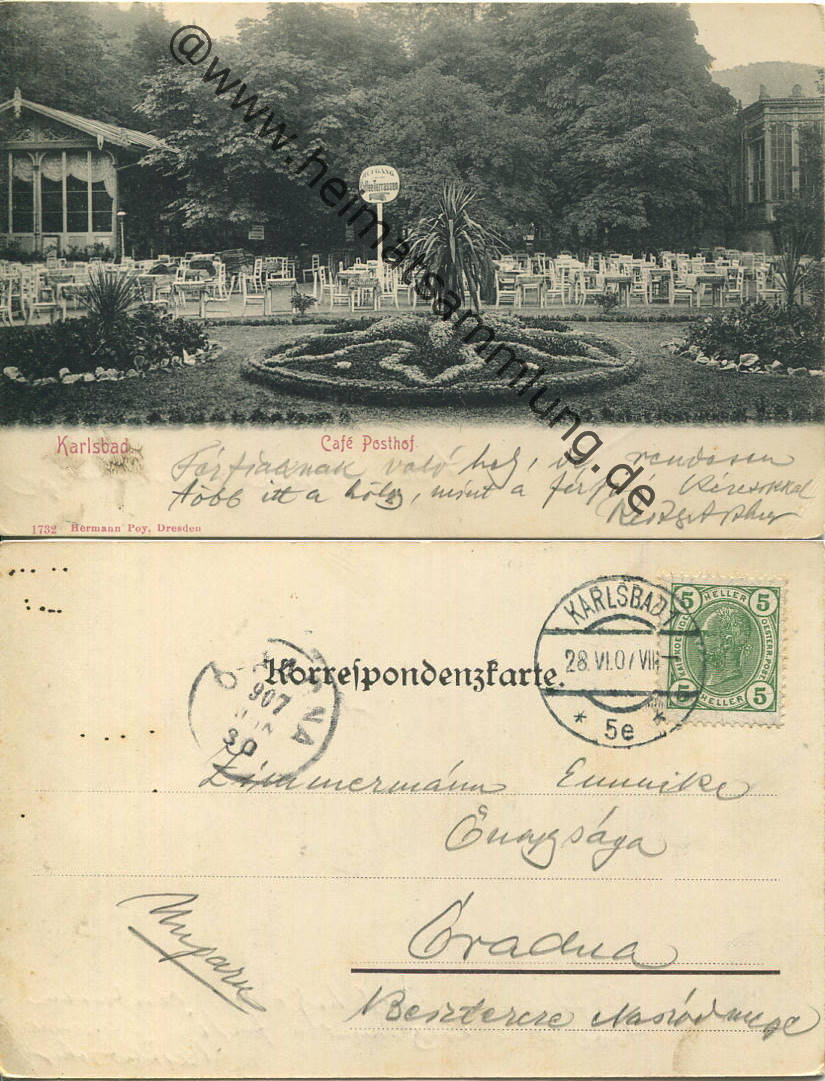 AUFGANG
Coffee Terrassen
@www.heimatsammlung.de
Karlsbad
Café Posthof
Férfiaknak való hely, de rendesen
több itt a hölgy, mint a férfi. Kézcsókkal
1732 Hermann Poy, Dresden
KARLSBAD 1
28.VI.07/VIII
* 5e *
5 HELLER 5
KAIS. KOENIGL. OESTERR. POST
5 HELLER 5
RADNA
907
JUN
30
Korrespondenzkarte.
Zimmermann Emmike
Őnagysága
Óradna
Ungarn
Besztercze Naszódmegye